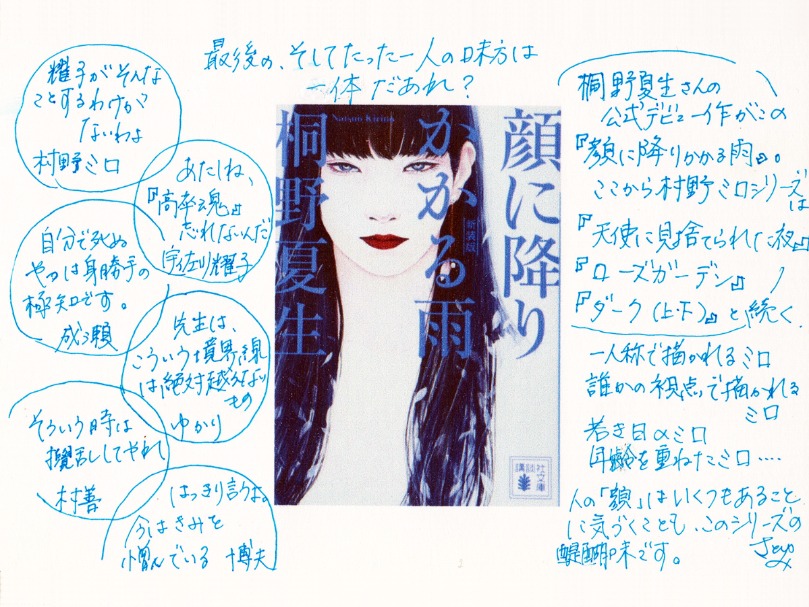 最後の、そしてたった一人の味方は
一体だあれ？
耀子がそんな
ことするわけが
ないわよ
村野ミロ
あたしね、
『高卒魂』
忘れないんだ
宇佐川耀子
自分で死ぬ
やつは身勝手の
極知です。
成瀬
先生は、
こういう境界線
は絶対越えない
もの
ゆかり
そういう時は
攪乱してやれ
村善
はっきり言うよ。
今はきみを
憎んでいる 博夫
Natsuo Kirino
顔に降り
かかる雨
新装版
桐野夏生
講談社
文庫
桐野夏生さんの
公式デビュー作がこの
『顔に降りかかる雨』。
ここから村野ミロシリーズ
は
『天使に見捨てられた夜』
『ローズガーデン』
『ダーク（上・下）』と続く
一人称で描かれるミロ
誰かの視点で描かれる
ミロ
若き日のミロ
年齢を重ねたミロ‥‥
人の「顔」はいくつもあること
に気づくことも、このシリーズの
醍醐味です。